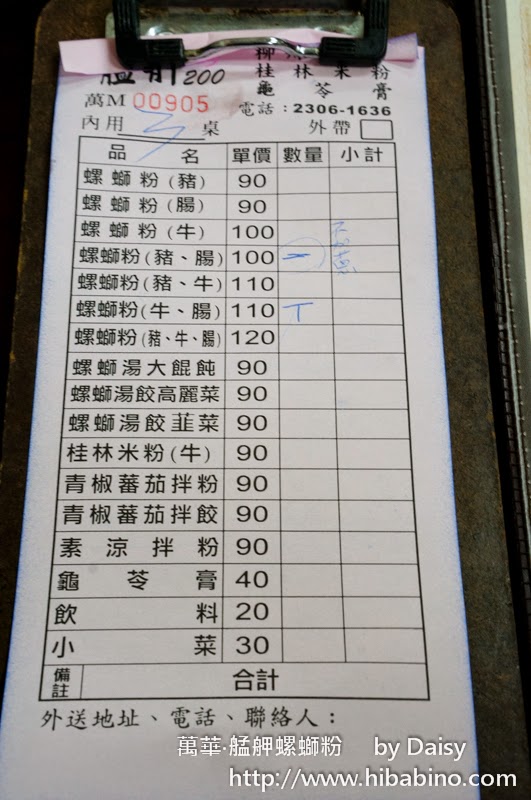 艋舺 200
柳
桂林米粉
龜苓膏
萬M 00905
電話：2306-1636
內用 3 桌 外帶
品名 單價 數量 小計
螺螄粉(豬) 90
螺螄粉(腸) 90
螺螄粉(牛) 100
螺螄粉(豬、腸) 100
螺螄粉(豬、牛) 110
螺螄粉(牛、腸) 110 T
螺螄粉(豬、牛、腸) 120
螺螄湯大餛飩 90
螺螄湯餃高麗菜 90
螺螄湯餃韮菜 90
桂林米粉(牛) 90
青椒蕃茄拌粉 90
青椒蕃茄拌餃 90
素涼拌粉 90
龜苓膏 40
飲料 20
小菜 30
備註 合計
外送地址、電話、聯絡人：
萬華·艋舺螺螄粉 by Daisy
http://www.hibabino.com